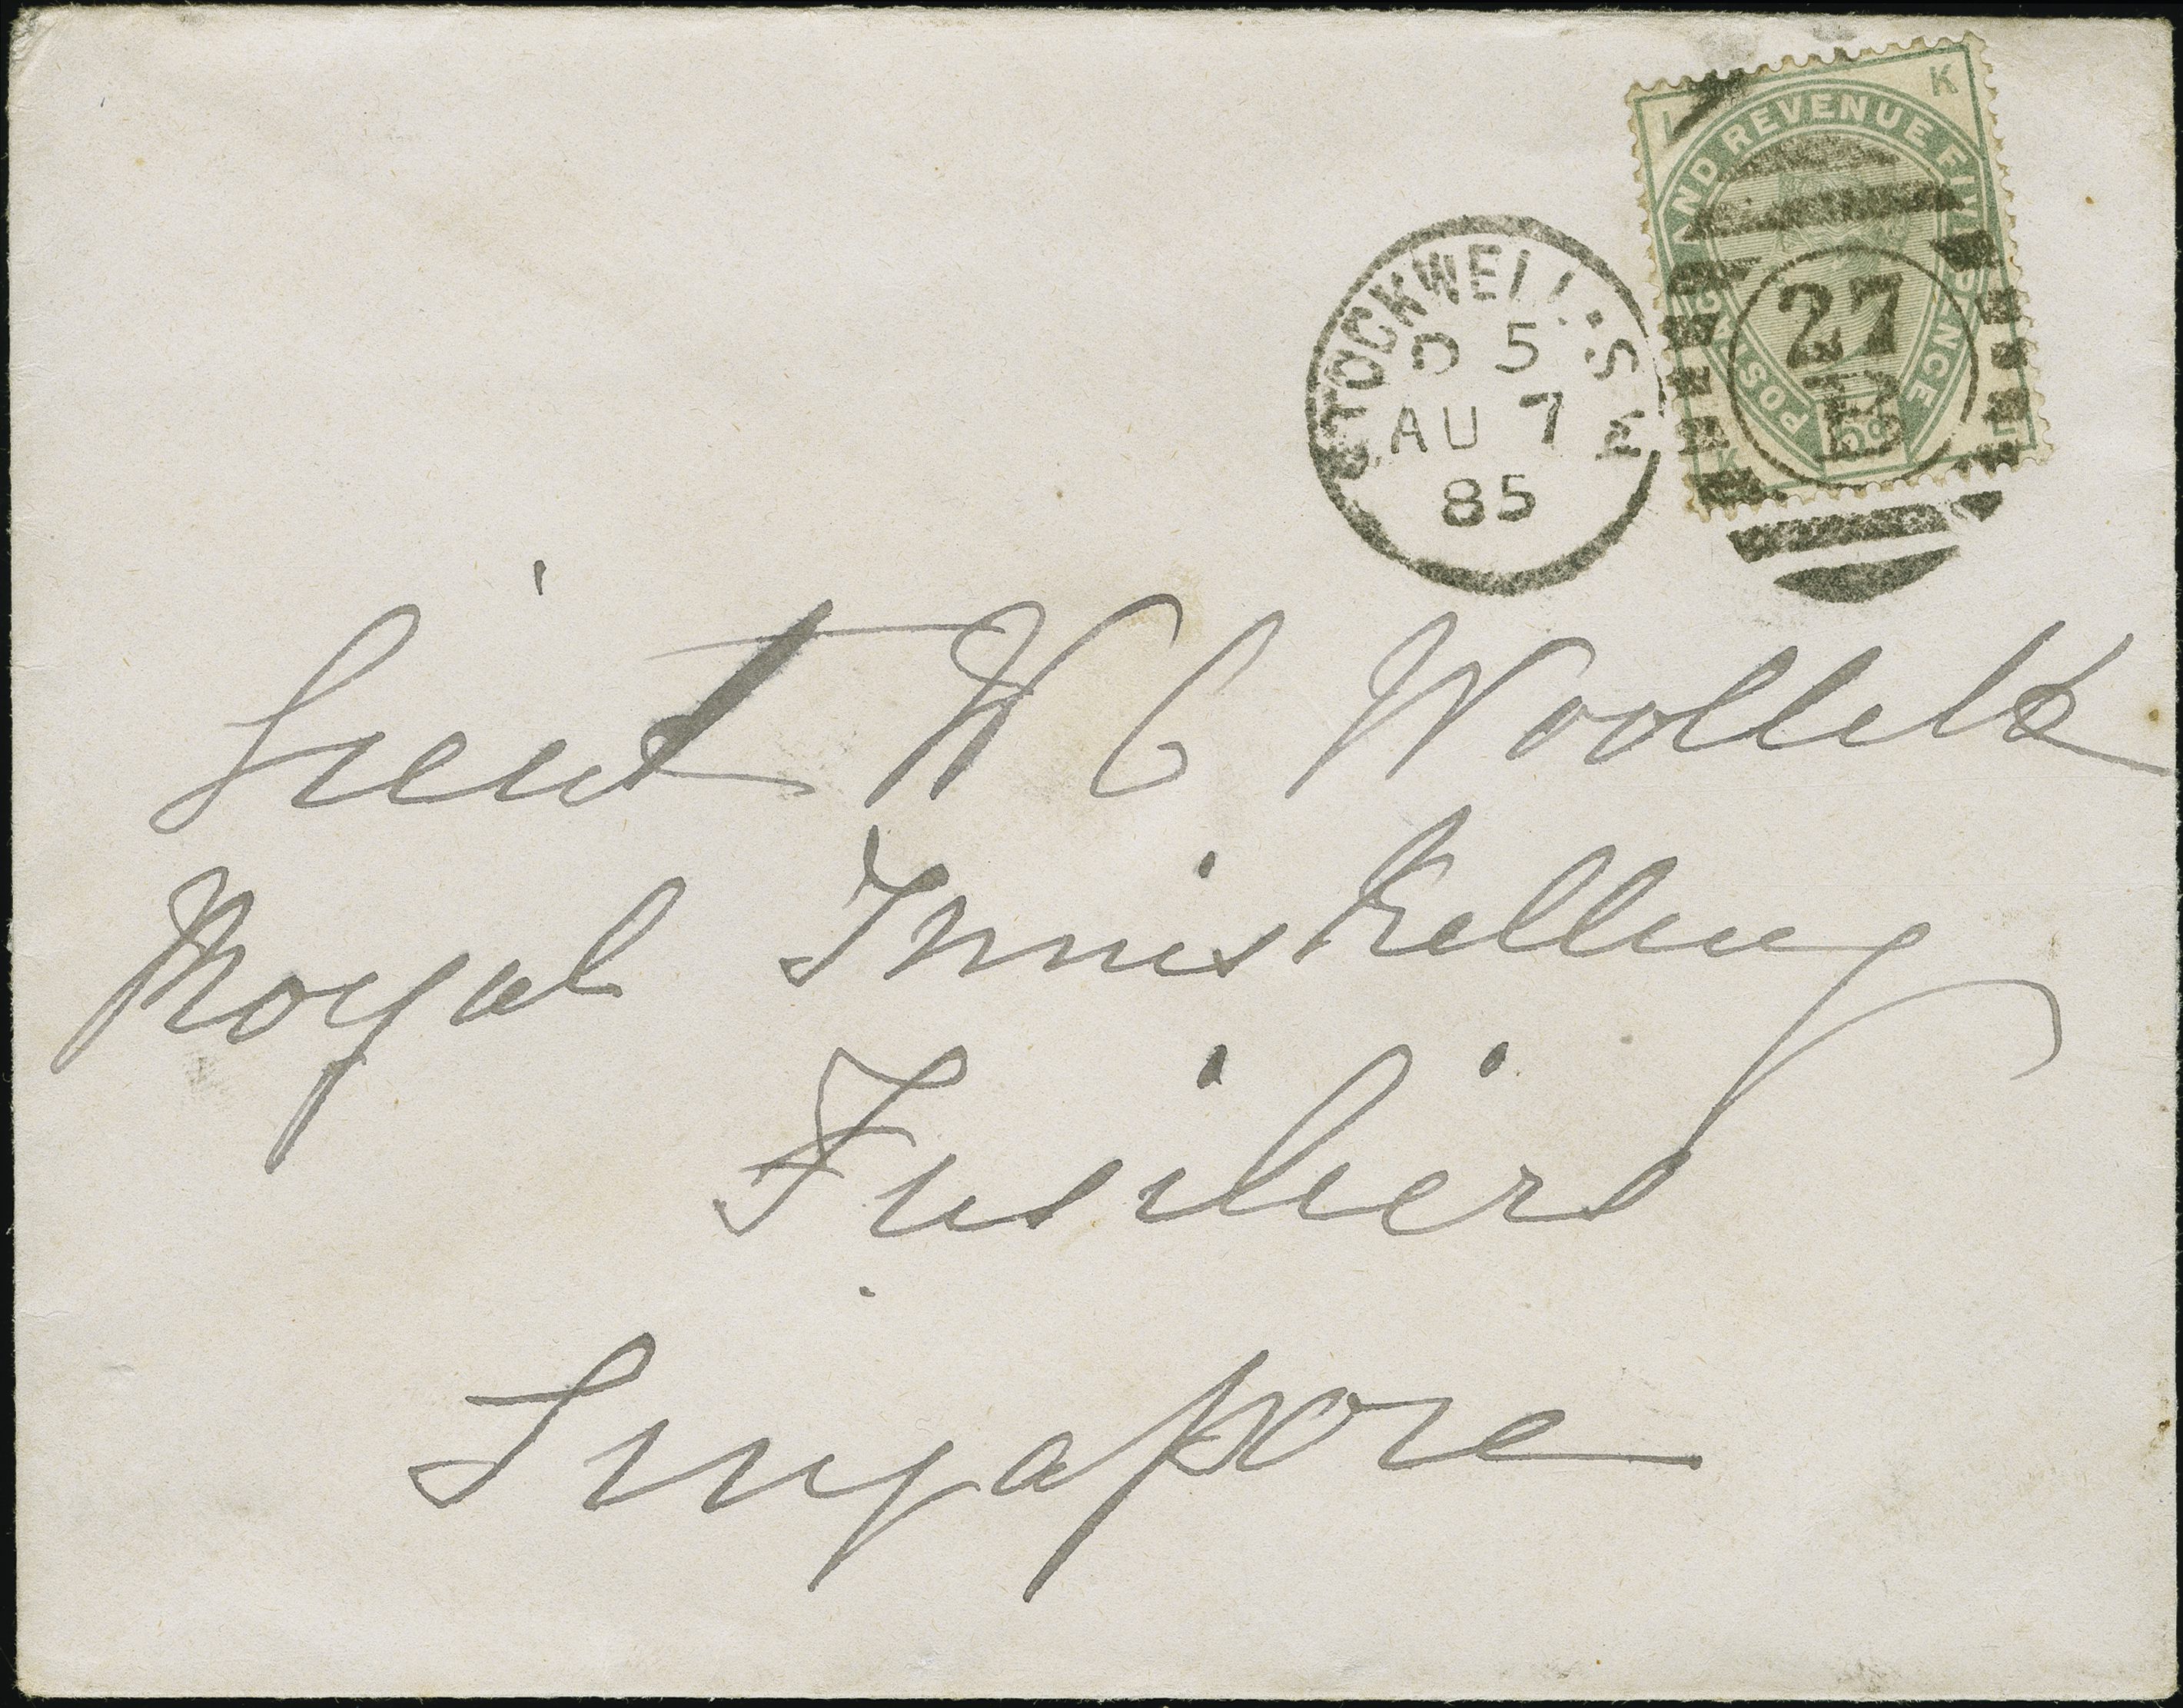 K
AND REVENUE FIVE PENCE
POSTAGE
STOCKWELL·S.W
D 5
AU 7
85
27
B
K
Lieut W C Woollett
Royal Inniskelling
Fusiliers
Singapore